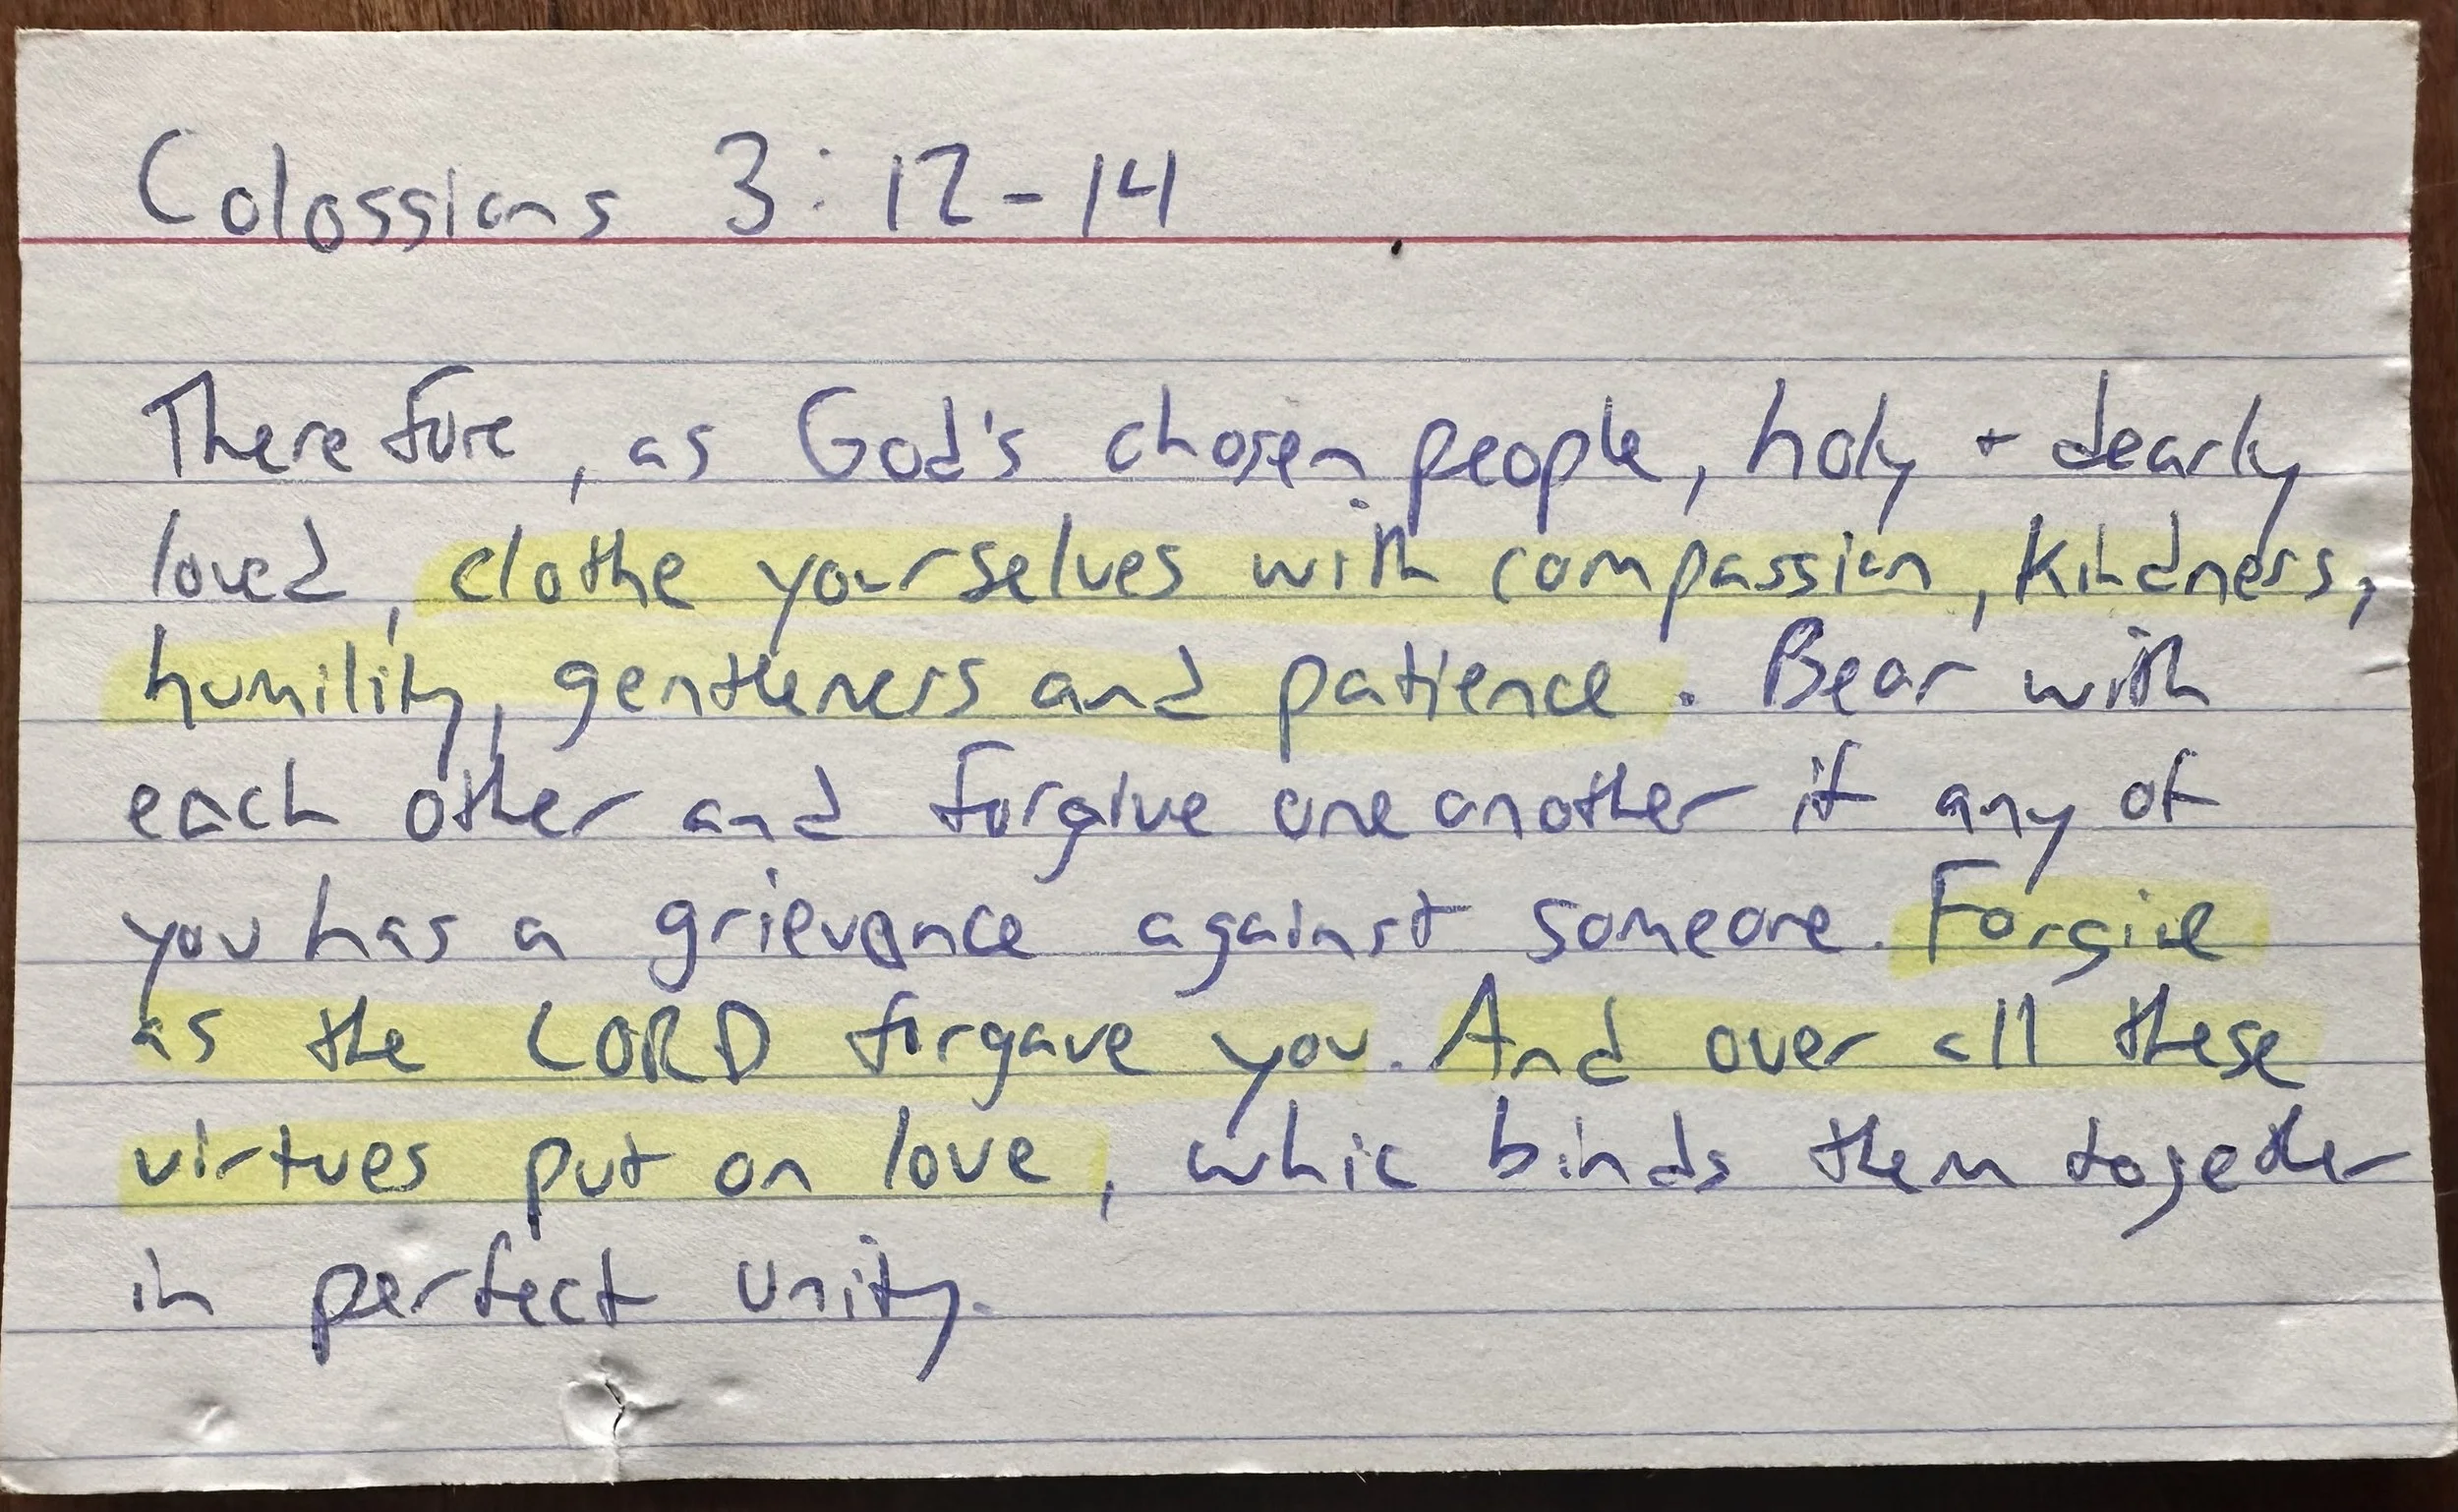 Colossians 3:12-14
Therefore, as God's chosen people, holy + dearly
loved, clothe yourselves with compassion, kindness,
humility, gentleness and patience. Bear with
each other and forgive one another if any of
you has a grievance against someone. Forgive
as the LORD forgave you. And over all these
virtues put on love, whic binds them together
in perfect unity.